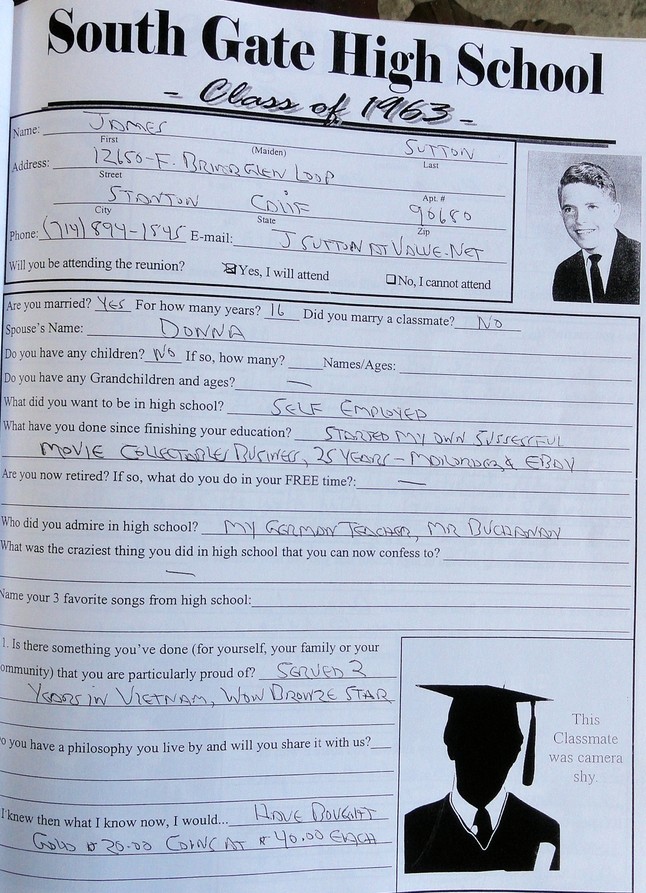 South Gate High School
- Class of 1963 -
Name: JAMES SUTTON
First (Maiden) Last
Address: 12650-F. BRIARGLEN LOOP
Street Apt. #
STANTON CALIF 90680
City State Zip
Phone: (714) 894-1545 E-mail: JSUTTON AT VALUE.NET
Will you be attending the reunion? ☒Yes, I will attend ☐No, I cannot attend
Are you married? YES For how many years? 16 Did you marry a classmate? NO
Spouse's Name: DONNA
Do you have any children? NO If so, how many? Names/Ages:
Do you have any Grandchildren and ages? —
What did you want to be in high school? SELF EMPLOYED
What have you done since finishing your education? STARTED MY OWN SUSSESFUL
MOVIE COLLECTABLES BUSINESS, 25 YEARS - MAILORDER & EBAY
Are you now retired? If so, what do you do in your FREE time?: —
Who did you admire in high school? MY GERMAN TEACHER, MR BUCHANAN
What was the craziest thing you did in high school that you can now confess to?
—
Name your 3 favorite songs from high school:
1. Is there something you've done (for yourself, your family or your
ommunity) that you are particularly proud of? SERVED 2
YEARS IN VIETNAM, WON BRONZE STAR
o you have a philosophy you live by and will you share it with us?
I knew then what I know now, I would... HAVE BOUGHT
GOLD $20.00 COINS AT $40.00 EACH
This
Classmate
was camera
shy.